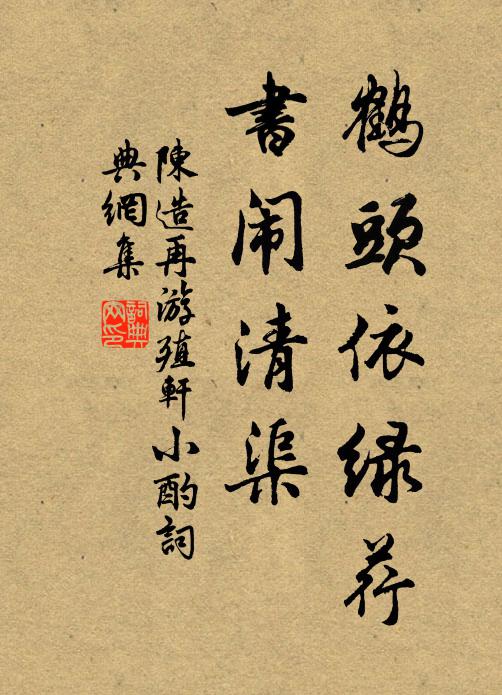 鶴頭依緑荇
書闹清渠
陳造再游殖軒小酌詞
典網集
詞典
网印